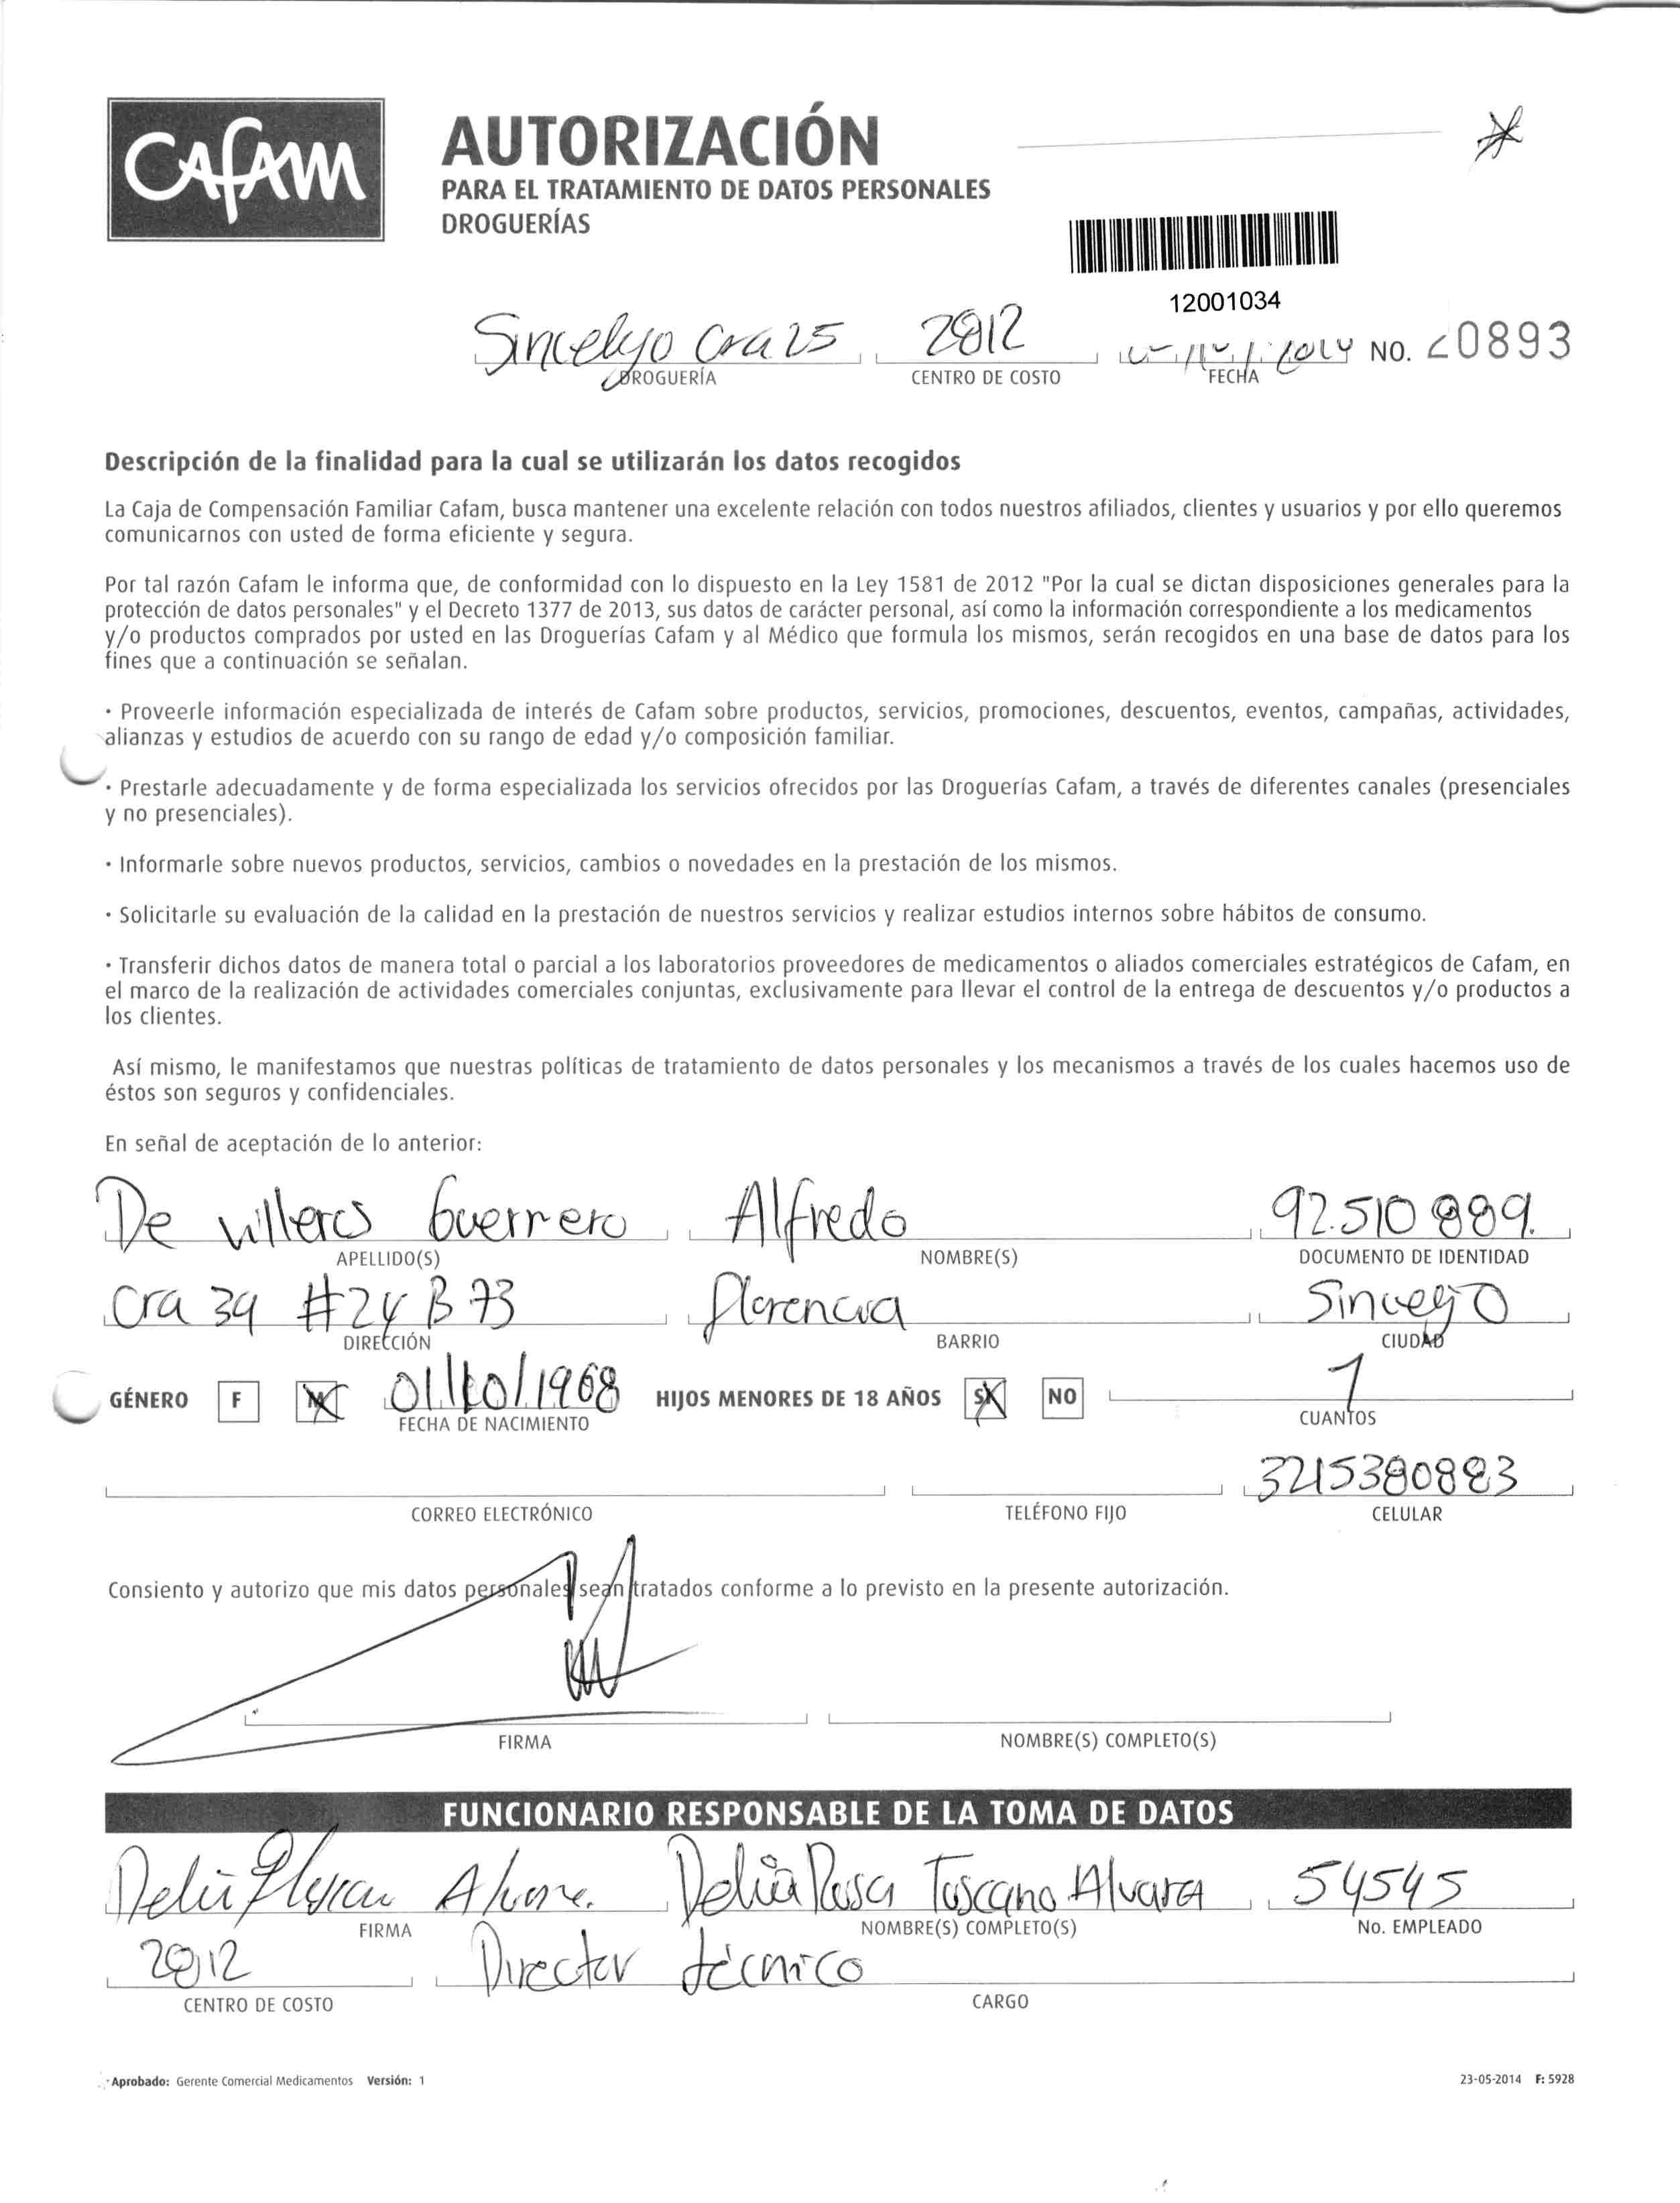 CAFAM
AUTORIZACIÓN
PARA EL TRATAMIENTO DE DATOS PERSONALES
DROGUERÍAS
12001034
Sincelejo Cra 25 2012 NO. 20893
DROGUERÍA CENTRO DE COSTO FECHA
Descripción de la finalidad para la cual se utilizarán los datos recogidos
La Caja de Compensación Familiar Cafam, busca mantener una excelente relación con todos nuestros afiliados, clientes y usuarios y por ello queremos
comunicarnos con usted de forma eficiente y segura.
Por tal razón Cafam le informa que, de conformidad con lo dispuesto en la Ley 1581 de 2012 "Por la cual se dictan disposiciones generales para la
protección de datos personales" y el Decreto 1377 de 2013, sus datos de carácter personal, así como la información correspondiente a los medicamentos
y/o productos comprados por usted en las Droguerías Cafam y al Médico que formula los mismos, serán recogidos en una base de datos para los
fines que a continuación se señalan.
· Proveerle información especializada de interés de Cafam sobre productos, servicios, promociones, descuentos, eventos, campañas, actividades,
alianzas y estudios de acuerdo con su rango de edad y/o composición familiar.
· Prestarle adecuadamente y de forma especializada los servicios ofrecidos por las Droguerías Cafam, a través de diferentes canales (presenciales
y no presenciales).
· Informarle sobre nuevos productos, servicios, cambios o novedades en la prestación de los mismos.
· Solicitarle su evaluación de la calidad en la prestación de nuestros servicios y realizar estudios internos sobre hábitos de consumo.
· Transferir dichos datos de manera total o parcial a los laboratorios proveedores de medicamentos o aliados comerciales estratégicos de Cafam, en
el marco de la realización de actividades comerciales conjuntas, exclusivamente para llevar el control de la entrega de descuentos y/o productos a
los clientes.
Así mismo, le manifestamos que nuestras políticas de tratamiento de datos personales y los mecanismos a través de los cuales hacemos uso de
éstos son seguros y confidenciales.
En señal de aceptación de lo anterior:
De villeros Guerrero Alfredo 92.510 889.
APELLIDO(S) NOMBRE(S) DOCUMENTO DE IDENTIDAD
Cra 39 #24 B 73 Florencia Sincelejo
DIRECCIÓN BARRIO CIUDAD
GÉNERO F M 01/10/1968 HIJOS MENORES DE 18 AÑOS SI NO 1
FECHA DE NACIMIENTO CUANTOS
3215380883
CORREO ELECTRÓNICO TELÉFONO FIJO CELULAR
Consiento y autorizo que mis datos personales sean tratados conforme a lo previsto en la presente autorización.
FIRMA NOMBRE(S) COMPLETO(S)
FUNCIONARIO RESPONSABLE DE LA TOMA DE DATOS
Delia Rosa Toscano Alvarez 54545
FIRMA NOMBRE(S) COMPLETO(S) No. EMPLEADO
2012 Director técnico
CENTRO DE COSTO CARGO
Aprobado: Gerente Comercial Medicamentos Versión: 1 23-05-2014 F: 5928